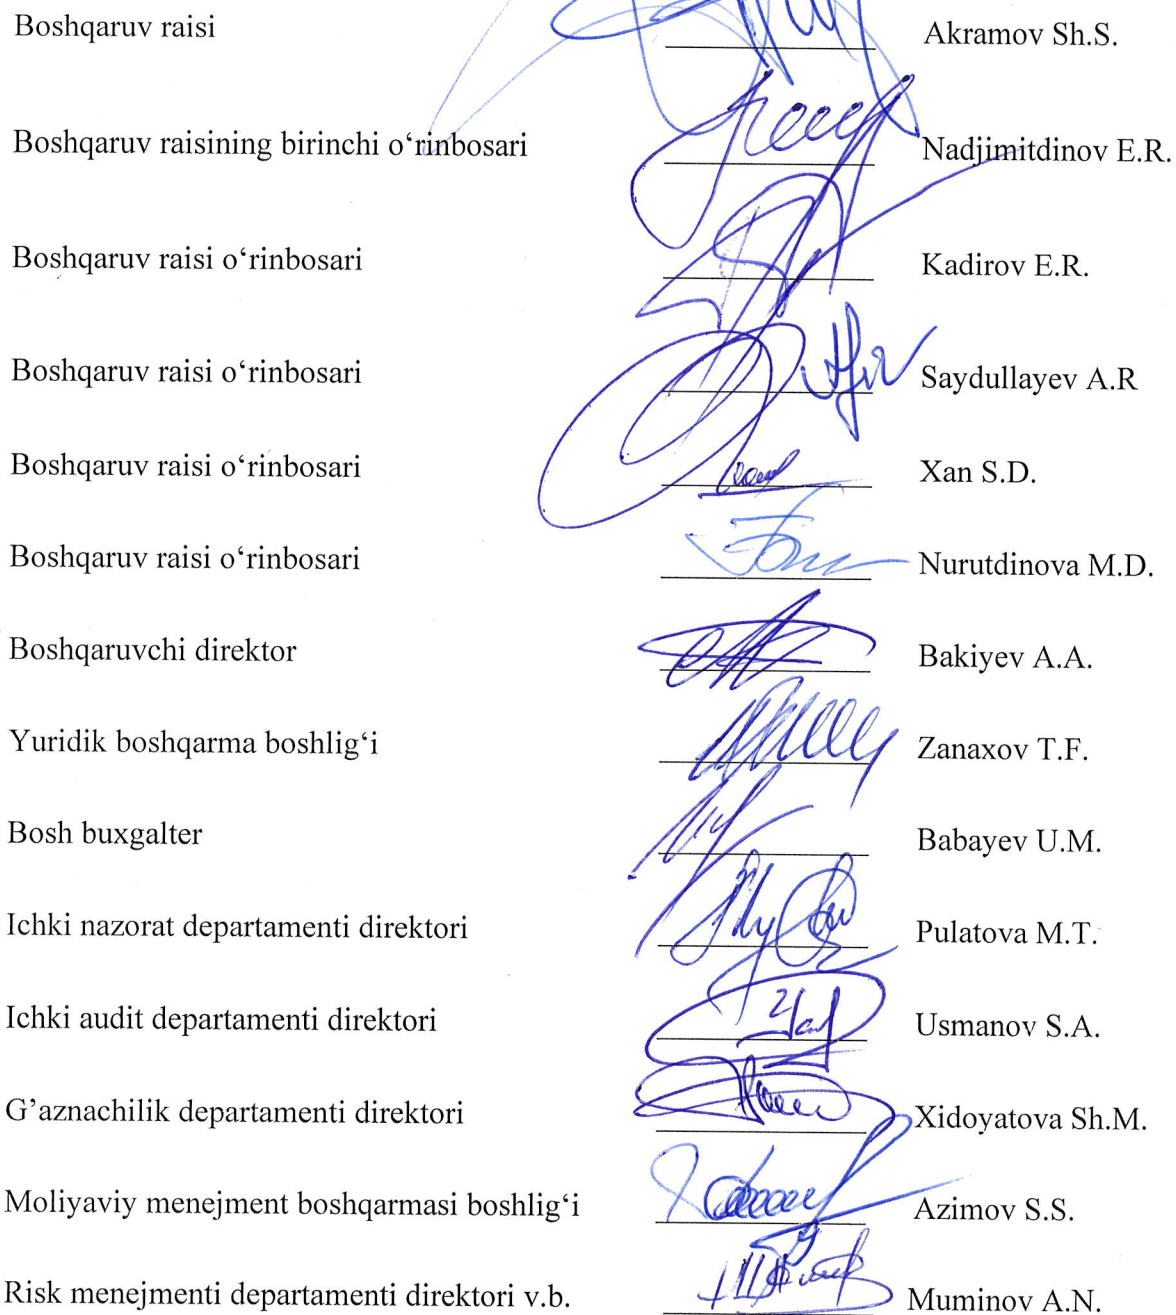 Boshqaruv raisi Akramov Sh.S.
Boshqaruv raisining birinchi o‘rinbosari Nadjimitdinov E.R.
Boshqaruv raisi o‘rinbosari Kadirov E.R.
Boshqaruv raisi o‘rinbosari Saydullayev A.R
Boshqaruv raisi o‘rinbosari Xan S.D.
Boshqaruv raisi o‘rinbosari Nurutdinova M.D.
Boshqaruvchi direktor Bakiyev A.A.
Yuridik boshqarma boshlig‘i Zanaxov T.F.
Bosh buxgalter Babayev U.M.
Ichki nazorat departamenti direktori Pulatova M.T.
Ichki audit departamenti direktori Usmanov S.A.
G’aznachilik departamenti direktori Xidoyatova Sh.M.
Moliyaviy menejment boshqarmasi boshlig‘i Azimov S.S.
Risk menejmenti departamenti direktori v.b. Muminov A.N.